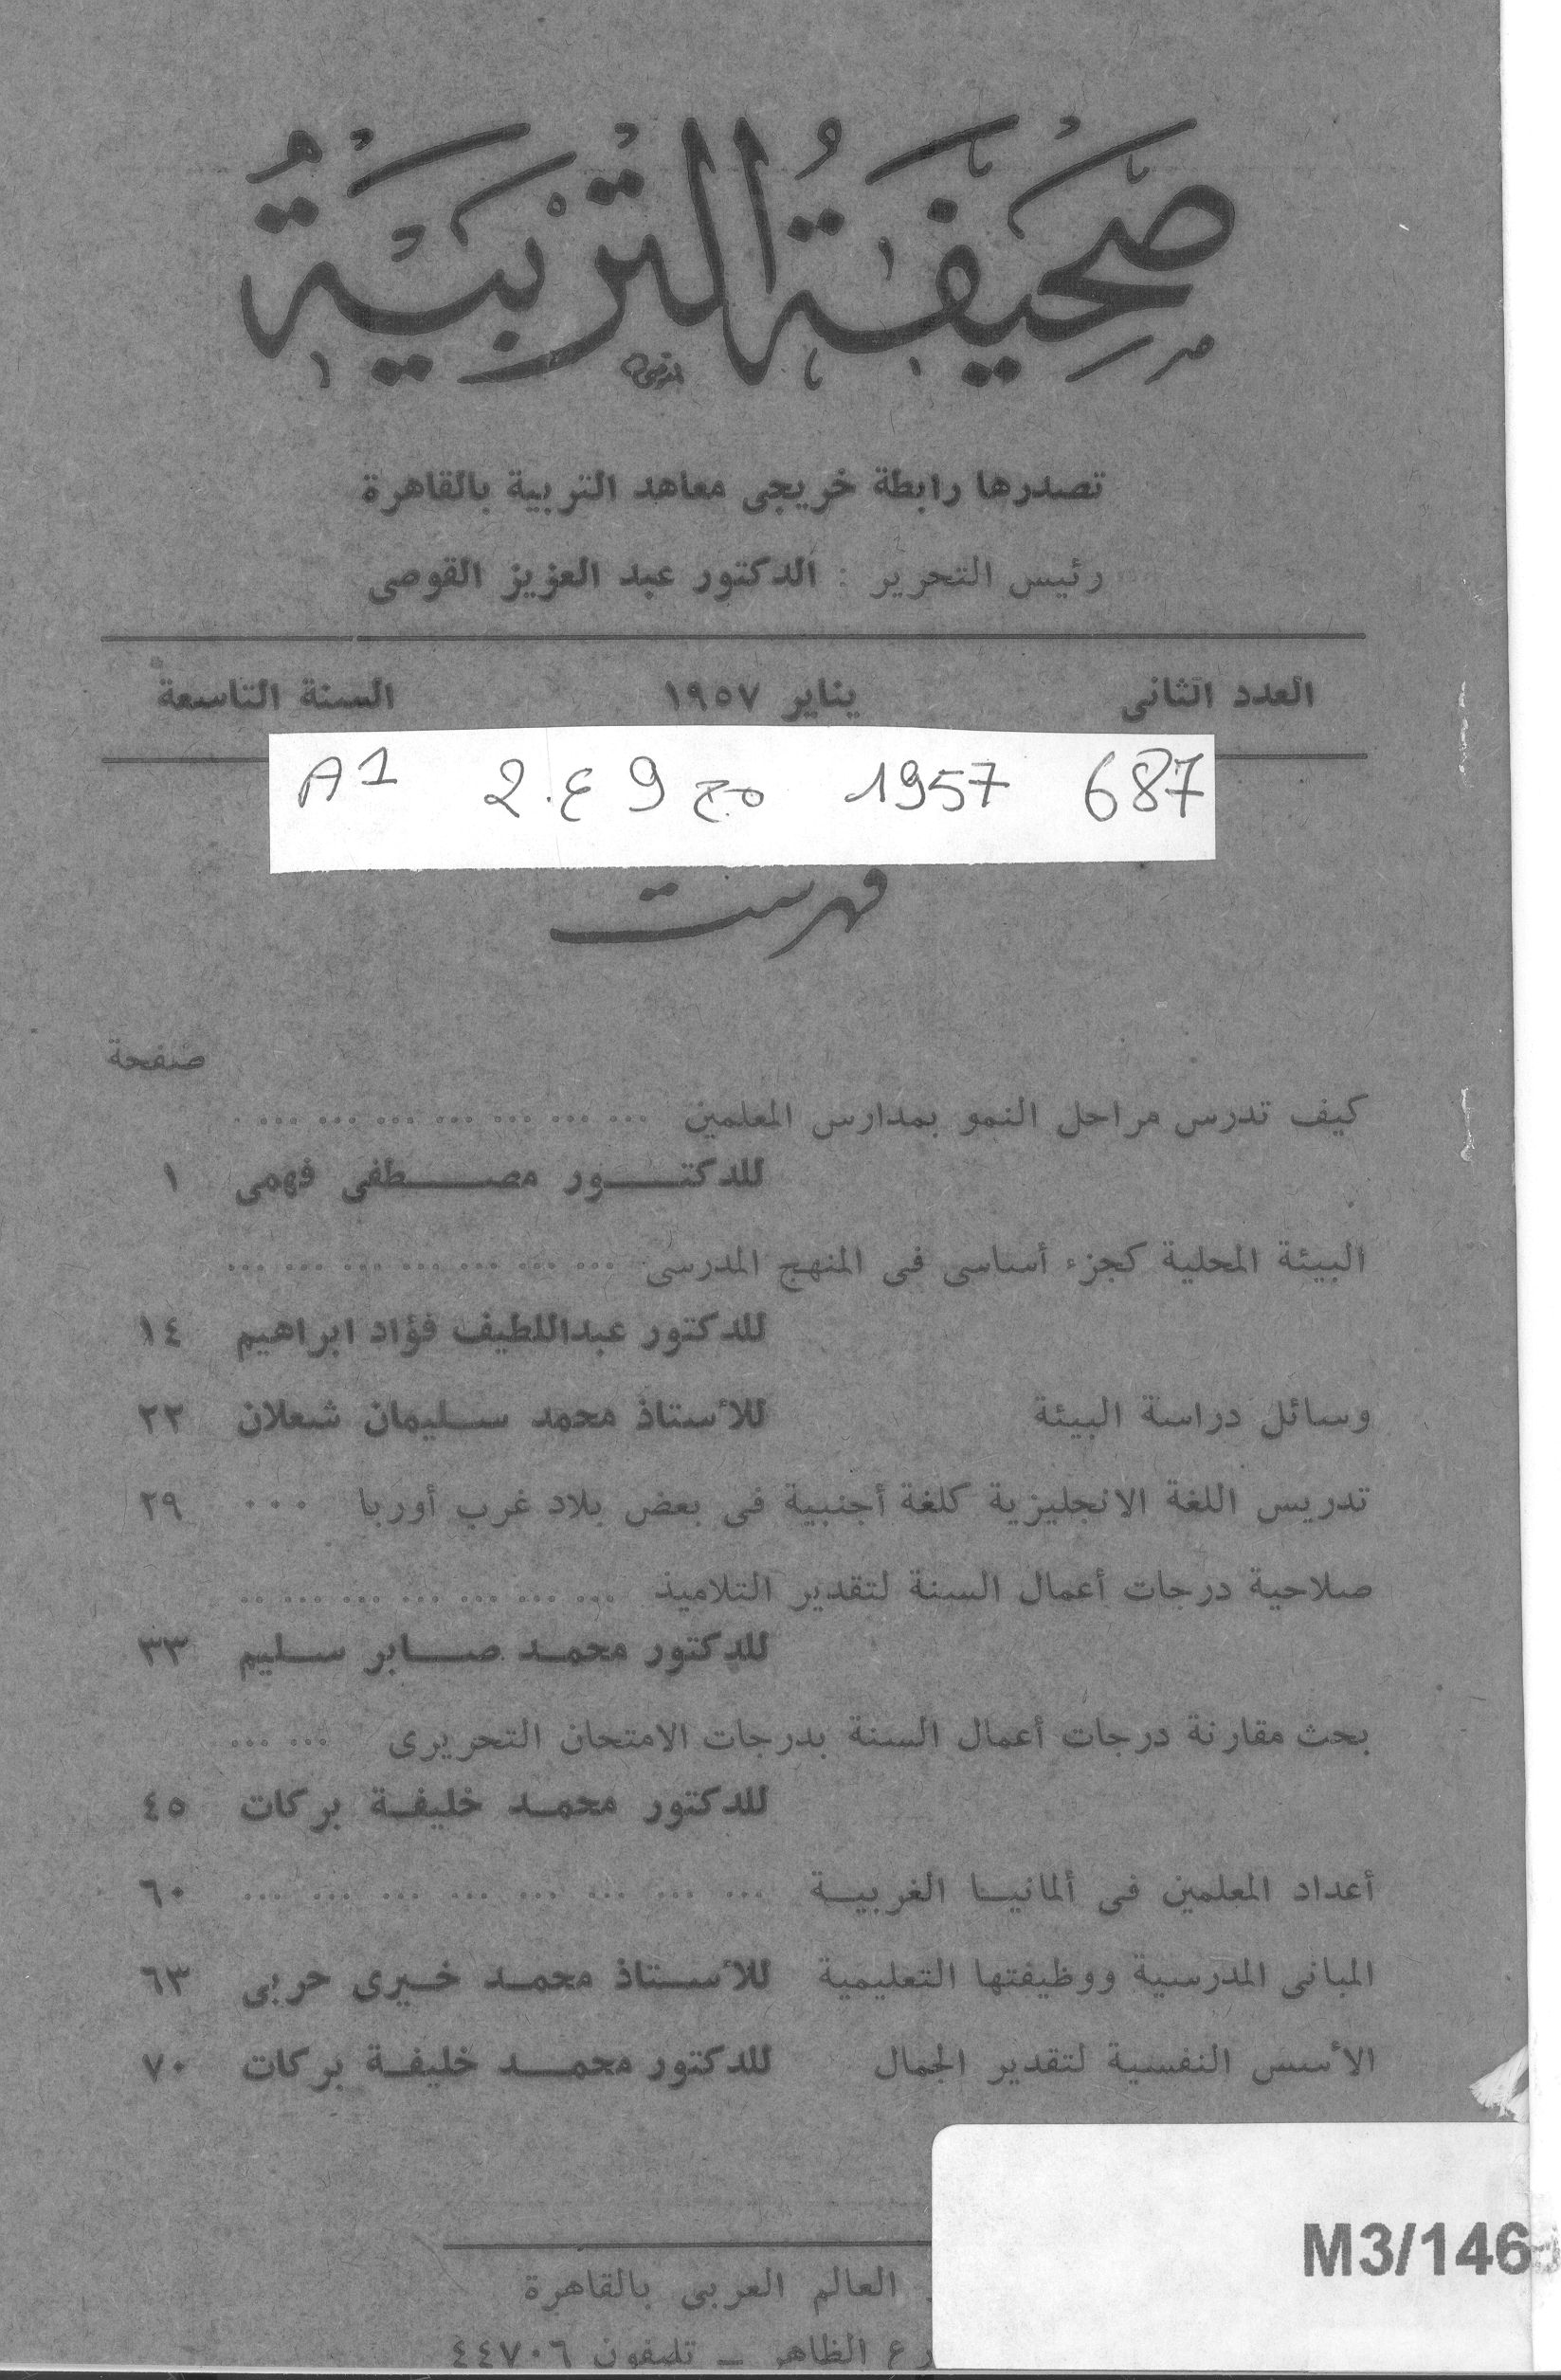 صحيفة التربية
تصدرها رابطة خريجى معاهد التربية بالقاهرة
رئيس التحرير : الدكتور عبد العزيز القوصى
العدد الثانى يناير ١٩٥٧ السنة التاسعة
687 1957 مج 9 ع.2 A1
فهرست
صفحة
كيف تدرس مراحل النمو بمدارس المعلمين ... ... ... ... ... ... ... .
للدكتـــور مصـــطفى فهمى ١
البيئة المحلية كجزء أساسى فى المنهج المدرسى ... ... ... ... ... ... ...
للدكتور عبداللطيف فؤاد ابراهيم ١٤
وسائل دراسة البيئة للأستاذ محمد سـليمان شعلان ٢٢
تدريس اللغة الانجليزية كلغة أجنبية فى بعض بلاد غرب أوربا ... ٢٩
صلاحية درجات أعمال السنة لتقدير التلاميذ ... ... ... ... ... ... ..
للدكتور محمـد صـابر سـليم ٣٣
بحث مقارنة درجات أعمال السنة بدرجات الامتحان التحريرى ... ...
للدكتور محمـد خليفـة بركات ٤٥
أعداد المعلمين فى ألمانيـا الغربيـة ... ... ... ... ... ... ... ... ٦٠
المبانى المدرسية ووظيفتها التعليمية للأسـتاذ محمـد خـيرى حربى ٦٣
الأسس النفسية لتقدير الجمال للدكتور محمـد خليفـة بركات ٧٠
M3/146
العالم العربى بالقاهرة
الظاهر ــ تليفون ٤٤٧٠٦